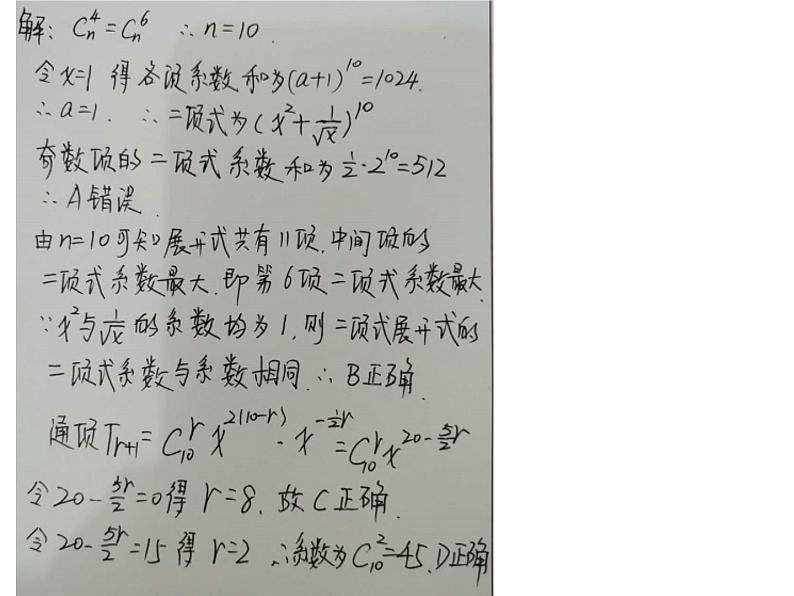 解: Cₙ⁴=Cₙ⁶ ∴n=10.
令x=1 得各项系数和为(a+1)¹⁰=1024.
∴a=1. ∴二项式为(x²+1/√x)¹⁰
奇数项的二项式系数和为½·2¹⁰=512
∴A错误.
由n=10可知展开式共有11项,中间项的
二项式系数最大.即第6项二项式系数最大.
∵x²与1/√x的系数均为1,则二项式展开式的
二项式系数与系数相同.∴B正确.
通项Tᵣ₊₁=C₁₀ʳx^{2(10-r)}·x^{-½r}=C₁₀ʳx^{20-5r/2}
令20-5r/2=0得r=8,故C正确.
令20-5r/2=15得r=2∴系数为C₁₀²=45,D正确